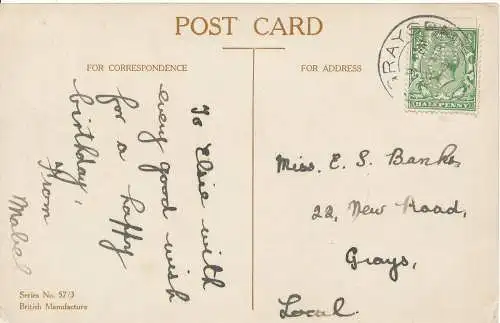 POST CARD
FOR CORRESPONDENCE
FOR ADDRESS
GRAYS
HALFPENNY
To Elsie with
every good wish
for a happy
birthday,
From
Mabel
Miss. E. S. Banks,
22, New Road,
Grays,
Local.
Series No. 57/3
British Manufacture